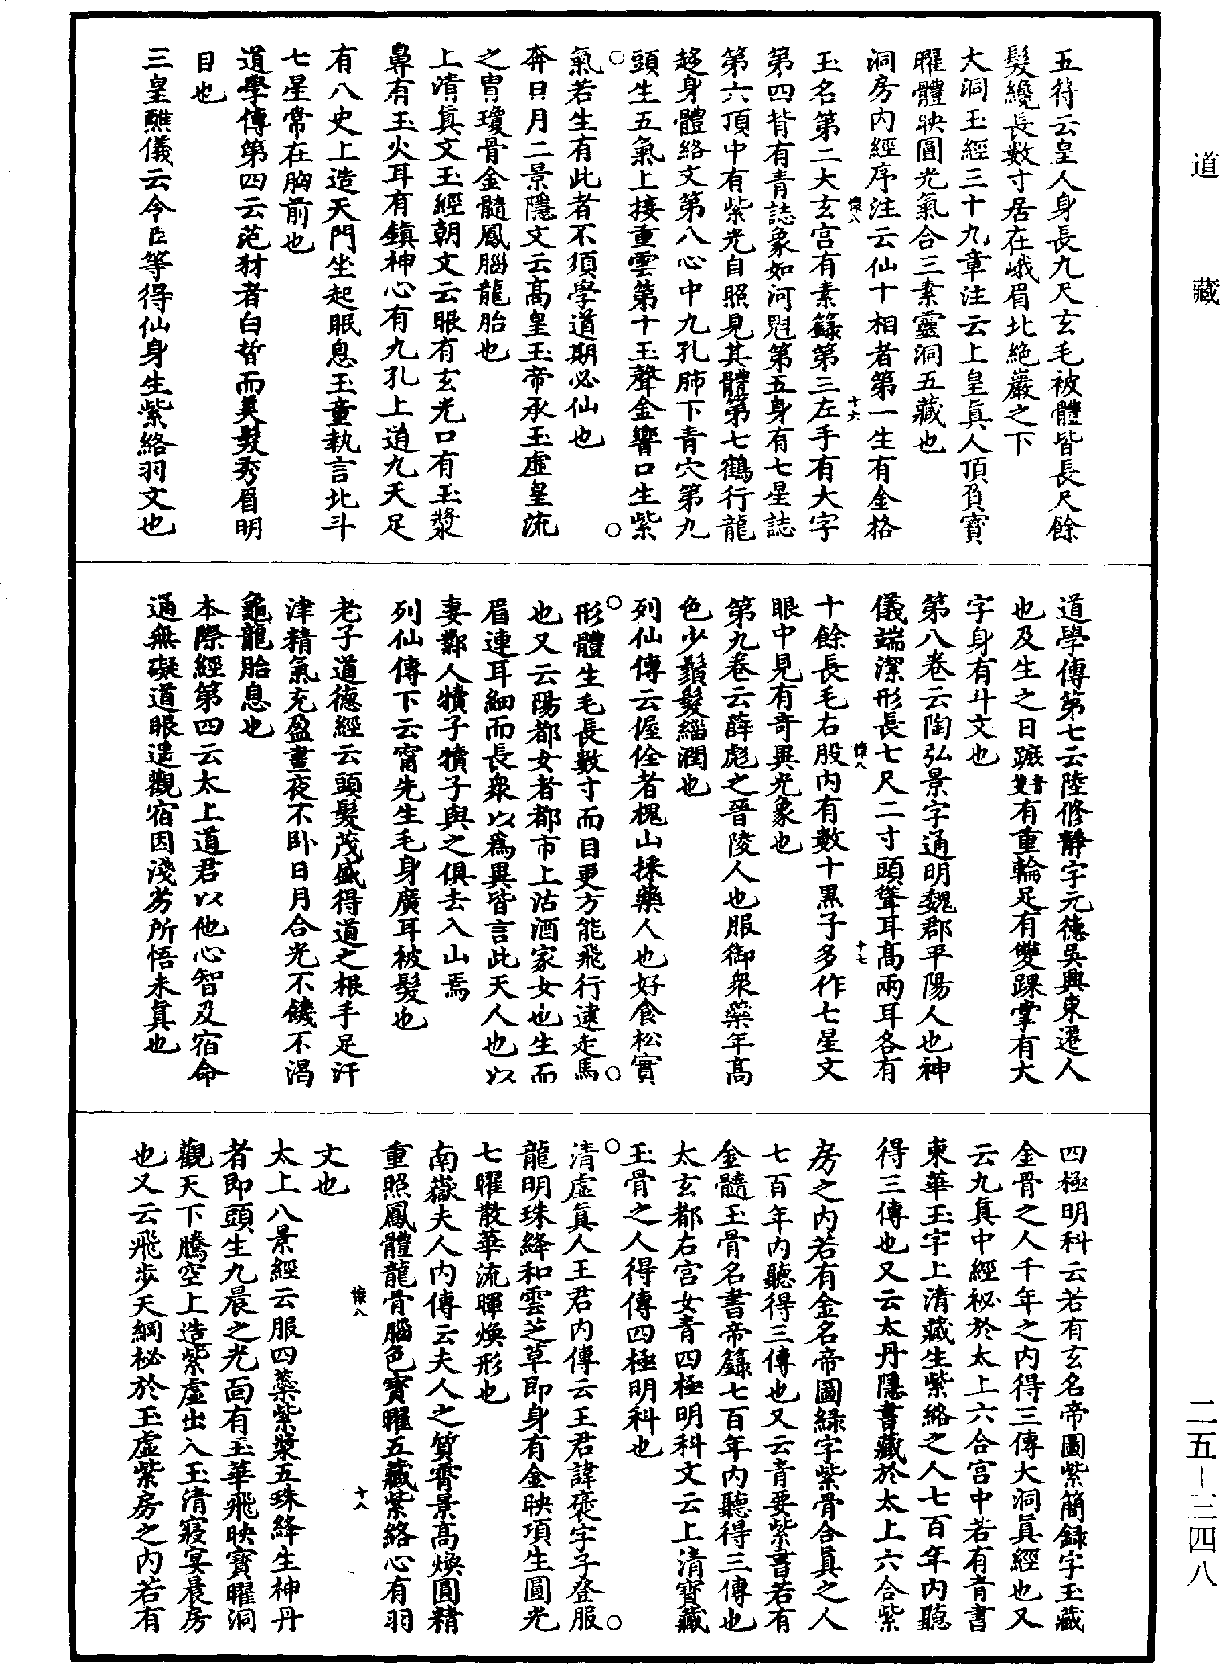 道藏
五符云皇人身長九尺玄毛被體皆長尺餘
髮纔長數寸居在峨眉北絶巖之下
大洞玉經三十九章注云上皇眞人頂負寶
曜體映圓光氣合三素靈洞五藏也
洞房內經序注云仙十相者第一生有金格
玉名第二大玄宮有素籙第三左手有大字
第四背有青誌象如河魁第五身有七星誌
第六頂中有紫光自照見其體第七鶴行龍
趍身體絡文第八心中九孔肺下青穴第九
頭生五氣上接重雲第十玉聲金響口生紫
氣若生有此者不須學道期必仙也
奔日月二景隱文云高皇玉帝承玉虛皇流
之胄瓊骨金髓鳳腦龍胎也
上清眞文玉經朝文云眼有玄光口有玉漿
鼻有玉火耳有鎮神心有九孔上造九天足
有八史上造天門坐起眠息玉童執言北斗
七星常在胸前也
道學傳第四云范豺者白皙而美髮秀眉明
目也
三皇醮儀云今臣等得仙身生紫絡羽文也
道學傳第七云陸修靜字元德吳興東遷人
也及生之日蹠有重輪足有雙踝掌有大
字身有斗文也
第八卷云陶弘景字通明魏郡平陽人也神
儀端潔形長七尺二寸頭聳耳高兩耳各有
十餘長毛右股內有數十黑子多作七星文
眼中見有奇異光象也
第九卷云薛彪之晉陵人也服御衆藥年高
色少鬚髮緇潤也
列仙傳云偓佺者槐山採藥人也好食松實
形體生毛長數寸而目更方能飛行逮走馬
也又云陽都女者都市上沽酒家女也生而
眉連耳細而長衆以爲異皆言此天人也以
妻鄴人犢子犢子與之俱去入山焉
列仙傳下云甯先生毛身廣耳被髮也
老子道德經云頭髮茂盛得道之根手足汗
津精氣充盈晝夜不卧日月合光不饑不渴
龜龍胎息也
本際經第四云太上道君以他心智及宿命
通無礙道眼遥觀宿因淺劣所悟未眞也
四極明科云若有玄名帝圖紫簡録字玉藏
金骨之人千年之內得三傳大洞眞經也又
云九眞中經祕於太上六合宮中若有青書
東華玉字上清藏生紫絡之人七百年內聽
得三傳也又云太丹隱書藏於太上六合紫
房之內若有金名帝圖緑字紫骨合眞之人
七百年內聽得三傳也又云青要紫書若有
金髓玉骨名書帝籙七百年內聽得三傳也
太玄都右宮女青四極明科文云上清寶藏
玉骨之人得傳四極明科也
清虛眞人王君內傳云王君諱褒字子登服
龍明珠絳和雲芝草即身有金映項生圓光
七曜散華流暉煥形也
南嶽夫人內傳云夫人之質霄景高煥圓精
重照鳳體龍骨腦色寶曜五藏紫絡心有羽
文也
太上八景經云服四藥紫漿五珠絳生神丹
者即頭生九晨之光面有玉華飛映寶曜洞
觀天下騰空上造紫虛出入玉清寢宴晨房
也又云飛步天綱祕於玉虛紫房之內若有
二五—三四八